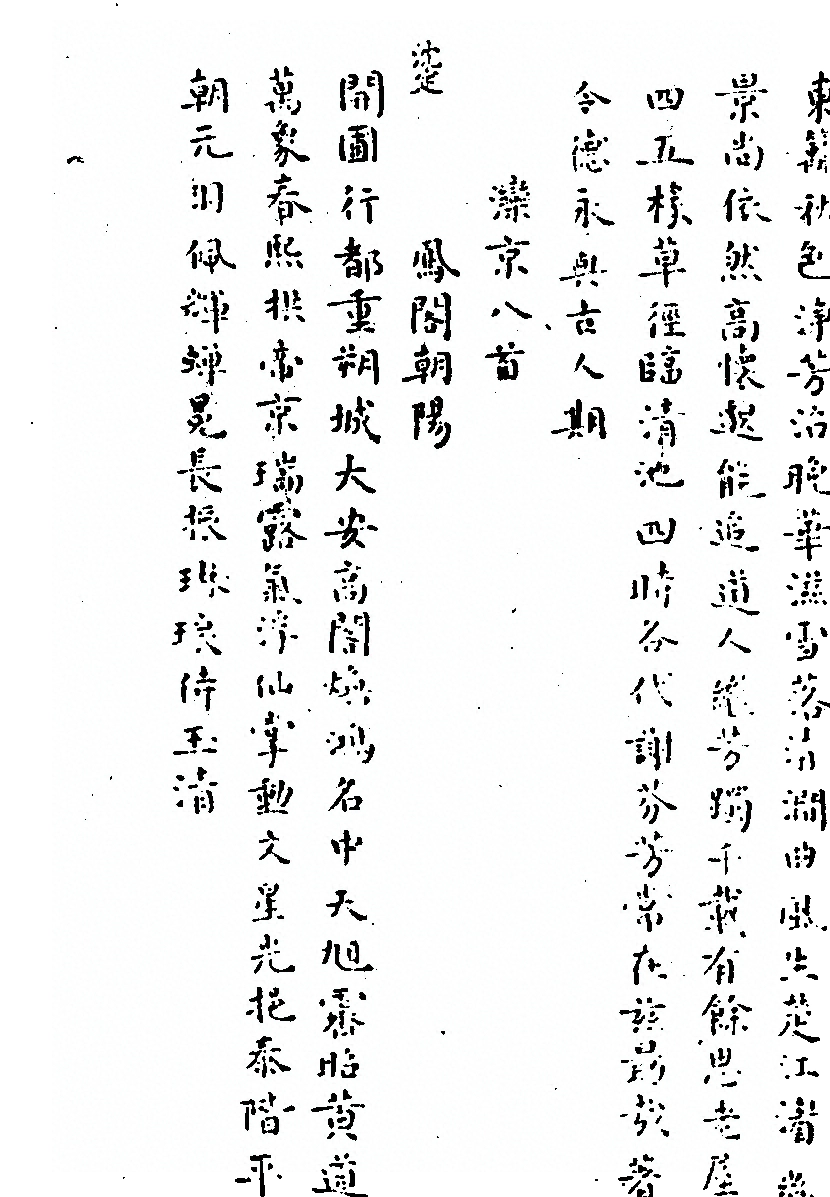 東籬秋色淨芳沼晚華滋雪落清澗曲風生楚江湄
景尚依然高懷起能追道人繼芳躅千載有餘思老屋
四五椽草徑臨清池四時各代謝芬芳常在茲勗哉著
令德永與古人期
灤京八首
鳳閣朝陽
開圖行都重朔城大安高閣煥鴻名中天旭靄昭黃道
萬象春熙拱帝京瑞露氣浮仙掌動文星光抱泰階平
朝元羽佩輝蟬冕長振琳琅侍玉清